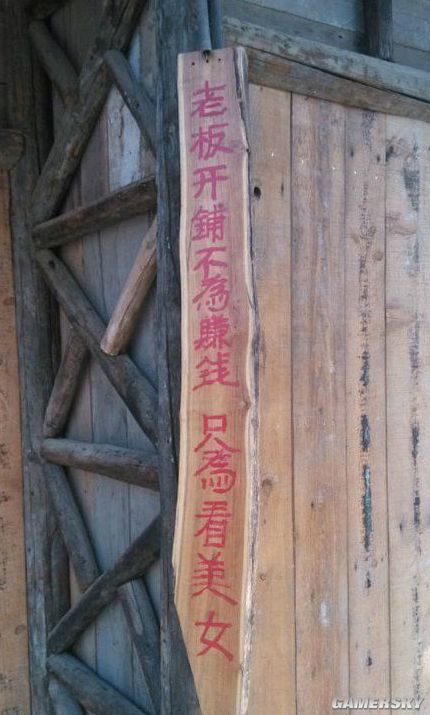 老板开鋪不為賺钱 只為看美女
GAMERSKY